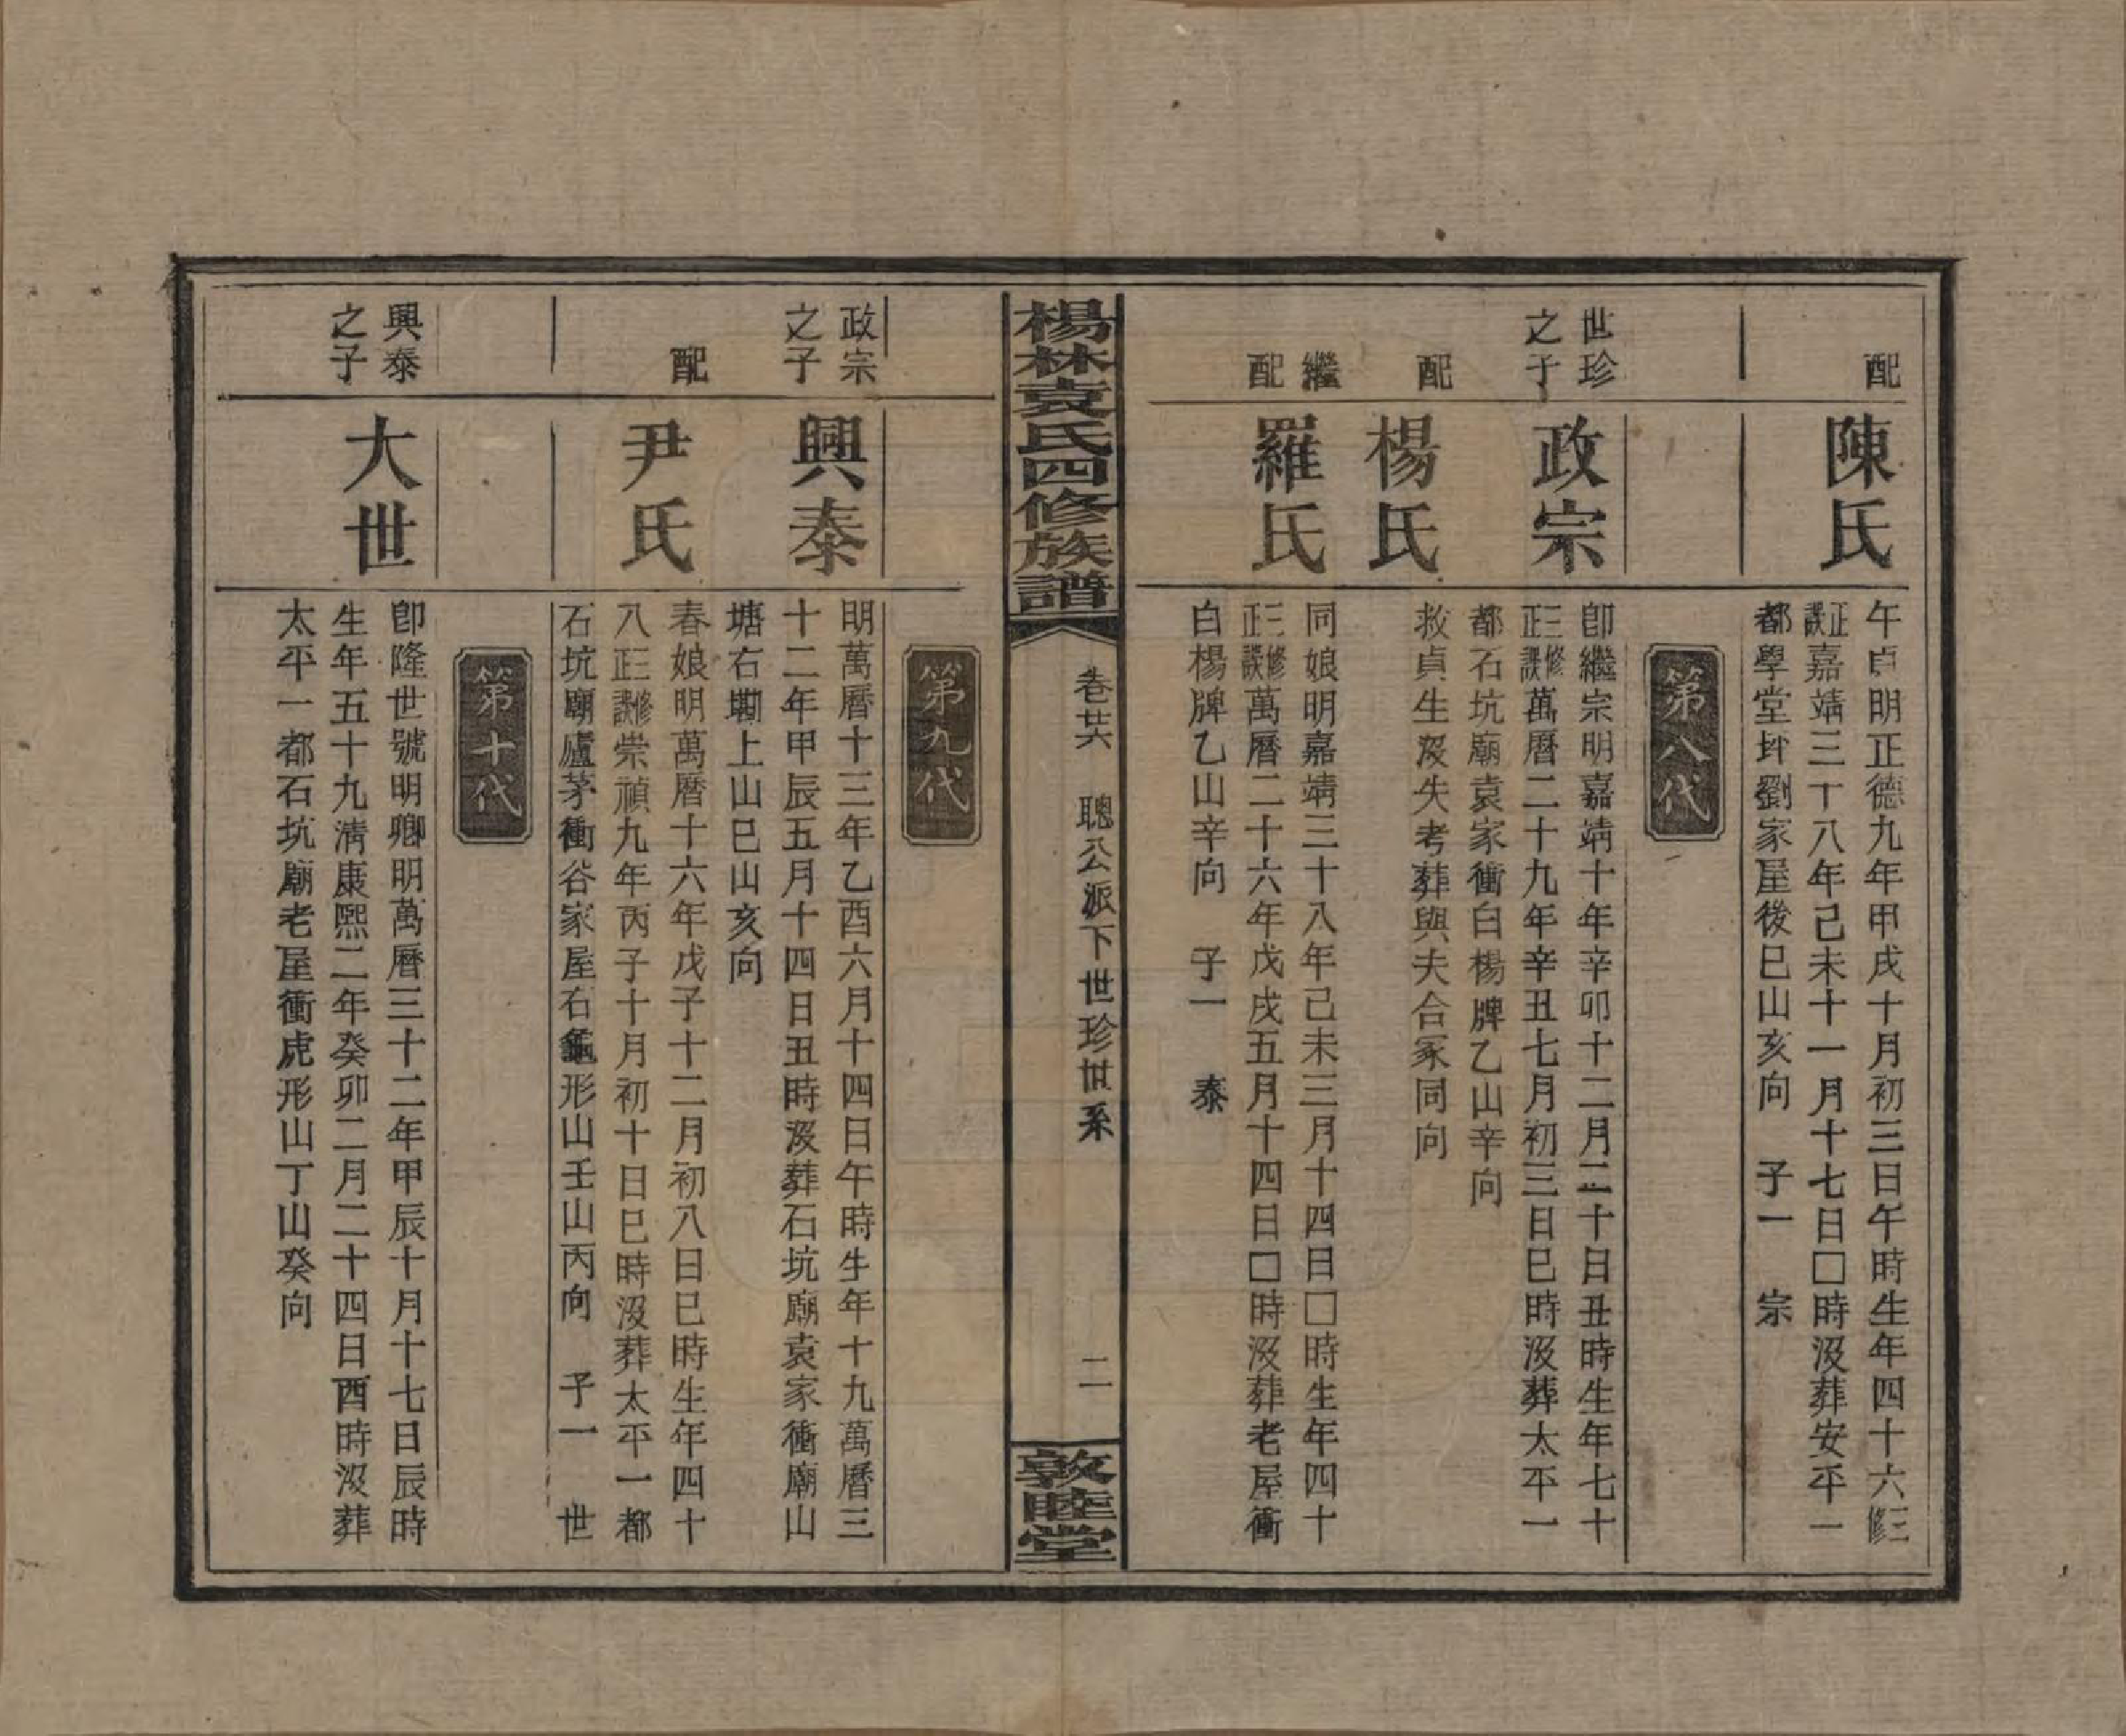 配
陳氏
午貞明正德九年甲戌十月初三日午時生年四十六三修
正誤嘉靖三十八年己未十一月十七日□時沒葬安平一
都學堂坪劉家屋後巳山亥向　子一　宗
第八代
世珍
之子
政宗
卽繼宗明嘉靖十年辛卯十二月二十日丑時生年七十
三修正誤萬曆二十九年辛丑七月初三日巳時沒葬太平一
都石坑廟袁家衝白楊牌乙山辛向
配
楊氏
救貞生沒失考葬與夫合冢同向
繼
配
羅氏
同娘明嘉靖三十八年己未三月十四日□時生年四十
三修正誤萬曆二十六年戊戌五月十四日□時沒葬老屋衝
白楊牌乙山辛向　子一　泰
楊林袁氏四修族譜
卷廿六　聰公派下世珍世系
二
敦睦堂
第九代
政宗
之子
興泰
明萬曆十三年乙酉六月十四日午時生年十九萬曆三
十二年甲辰五月十四日丑時沒葬石坑廟袁家衝廟山
塘右墈上山巳山亥向
配
尹氏
春娘明萬曆十六年戊子十二月初八日巳時生年四十
八三修正誤崇禎九年丙子十月初十日巳時沒葬太平一都
石坑廟廬茅衝谷家屋右龜形山壬山丙向　子一　世
第十代
興泰
之子
大世
卽隆世號明卿明萬曆三十二年甲辰十月十七日辰時
生年五十九淸康熙二年癸卯二月二十四日酉時沒葬
太平一都石坑廟老屋衝虎形山丁山癸向